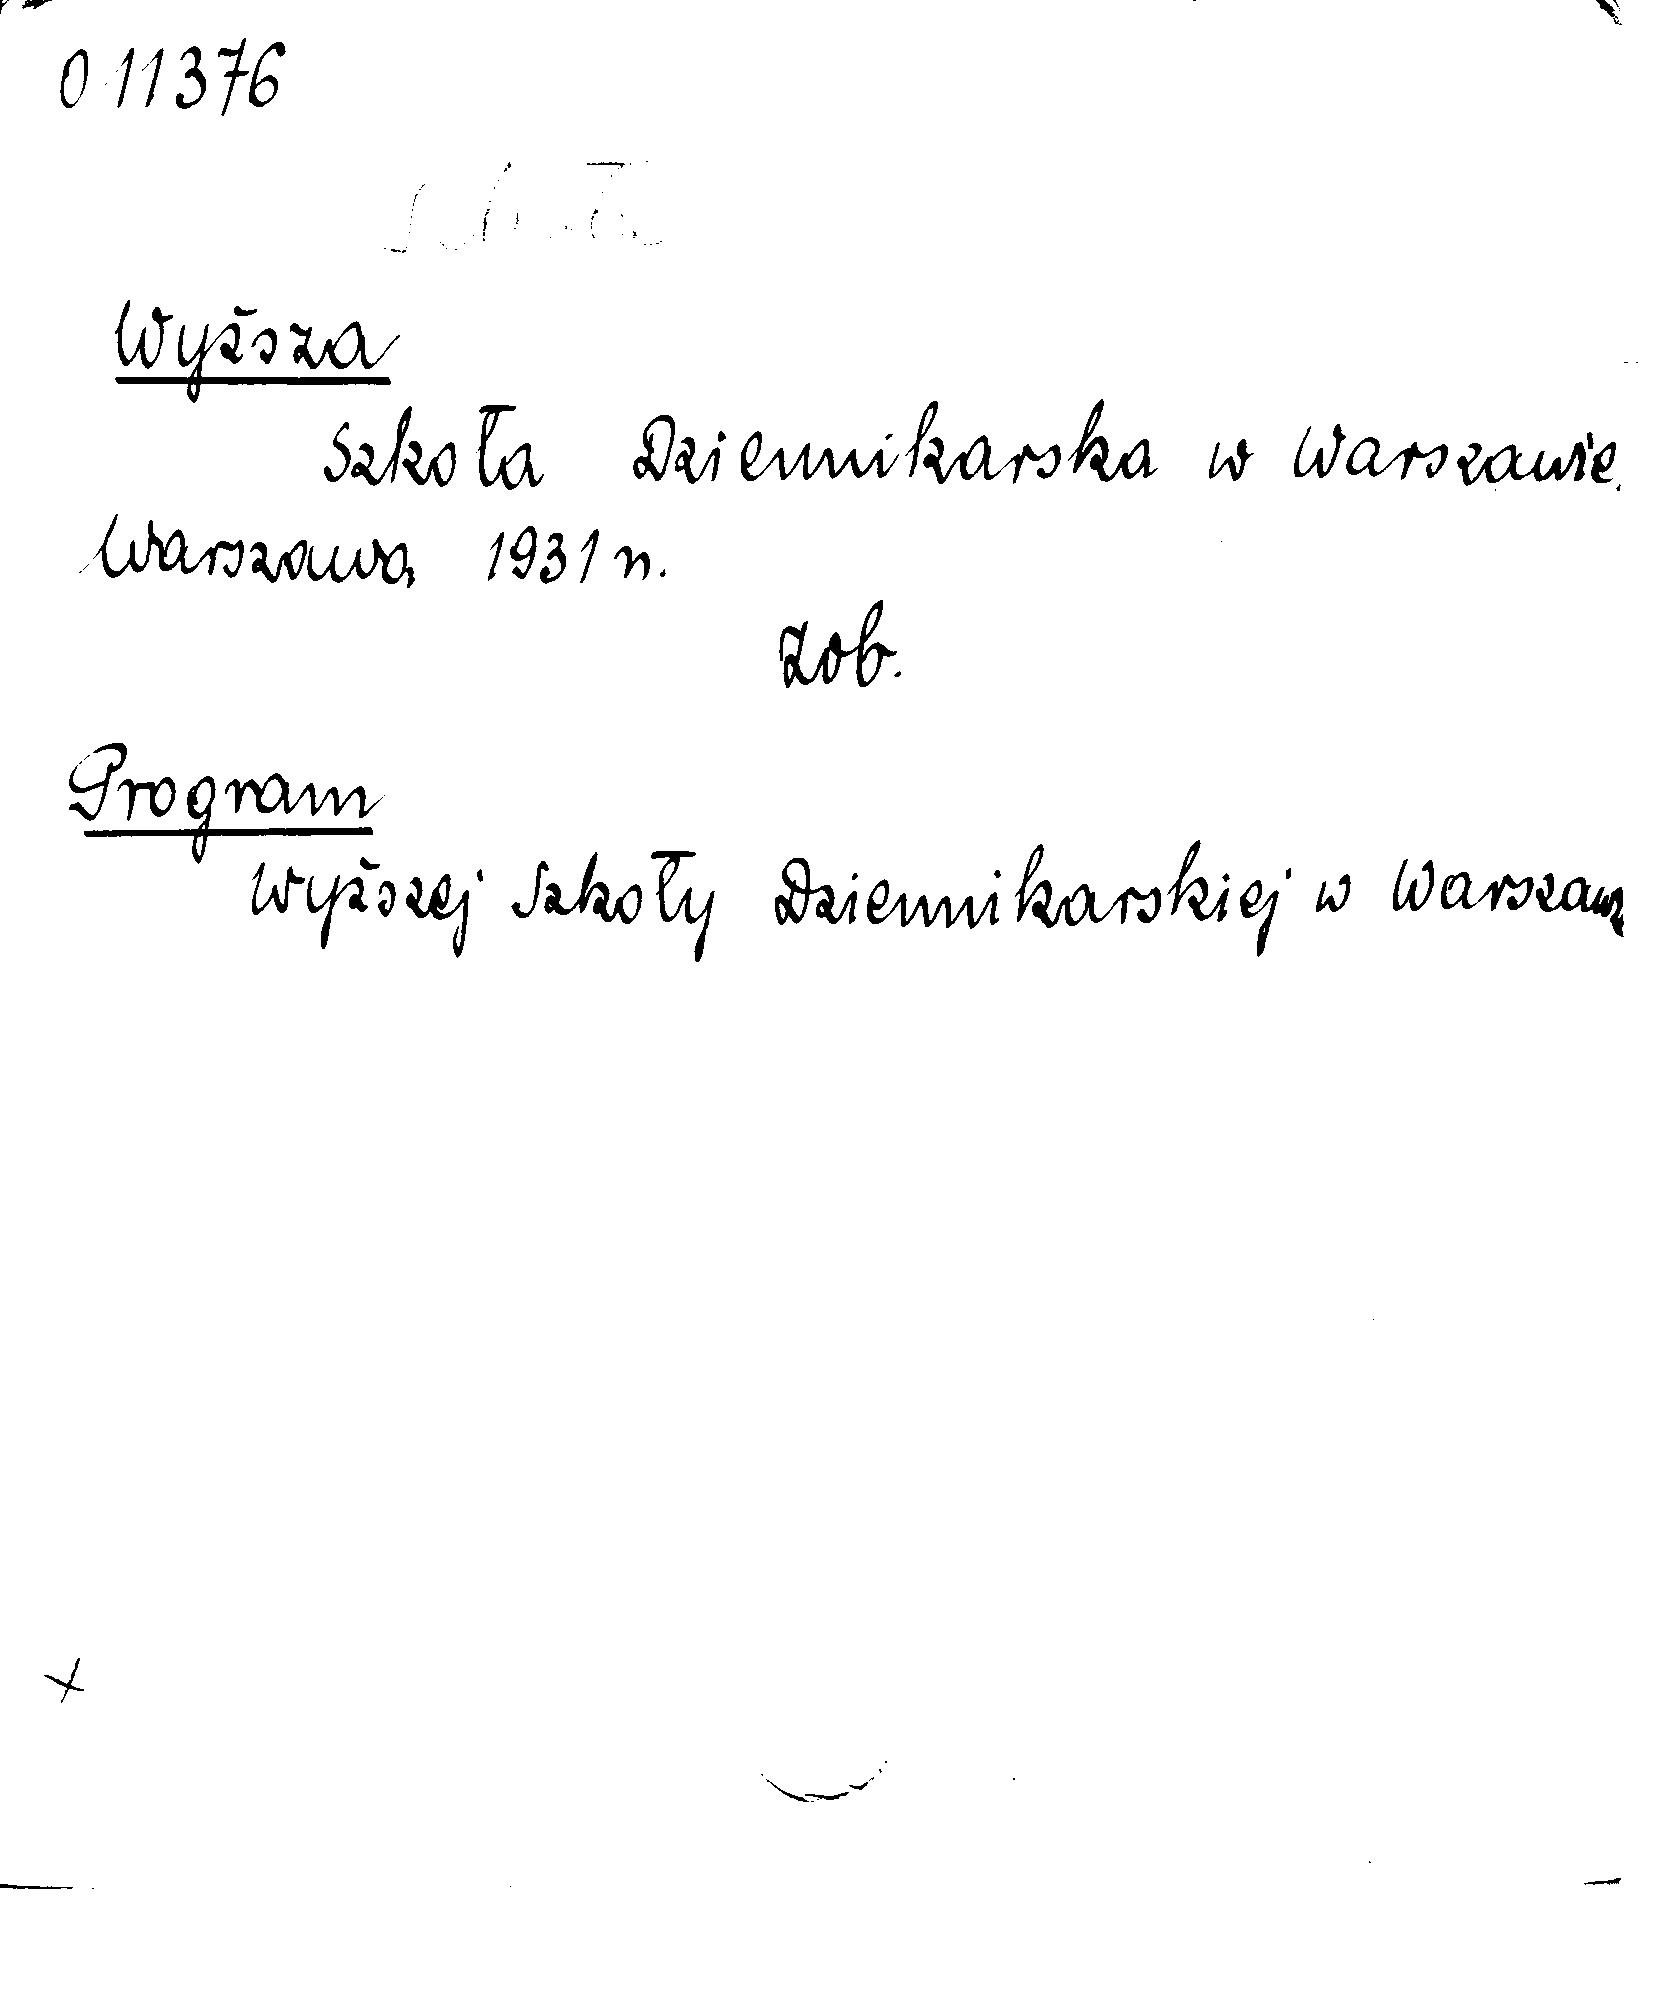 0 11376
Wyższa
Szkoła Dziennikarska w Warszawie.
Warszawa 1931 r.
Zob.
Program
Wyższej Szkoły Dziennikarskiej w